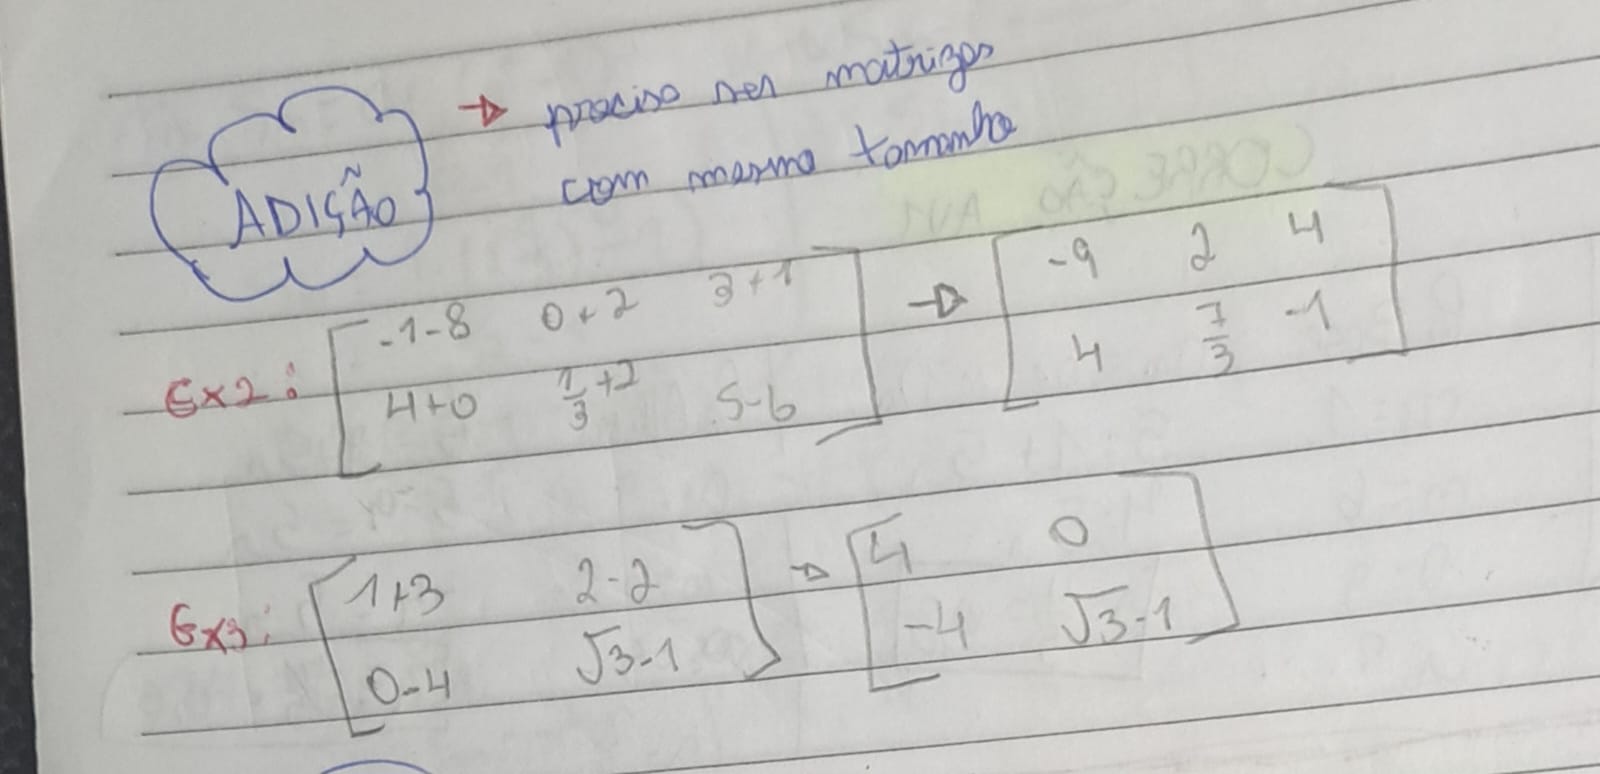 ADIÇÃO → preciso ser matrizes
com mesmo tamanho
Ex2: [ -1-8 0+2 3+1 ] → [ -9 2 4 ]
[ 4+0 1/3+2 5-6 ] [ 4 7/3 -1 ]
Ex3: [ 1+3 2-2 ] → [ 4 0 ]
[ 0-4 √3-1 ] [ -4 √3-1 ]